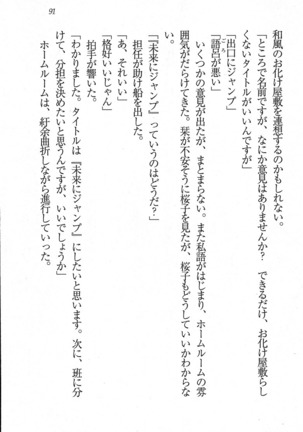 91
和風のお化け屋敷を連想するのかもしれない。
「ところで名前ですが、なにか意見はありませんか？　できるだけ、お化け屋敷らし
くないタイトルがいいんですが」
「出口にジャンプ」
「語呂が悪い」
　いくつかの意見が出たが、まとまらない。また私語がはじまり、ホームルームの雰
囲気がだらけてきた。栞が不安そうに桜子を見たが、桜子もどうしていいかわからな
い。
「『未来にジャンプ』っていうのはどうだ？」
　担任が助け船を出した。
「あ、それいい」
「格好いいじゃん」
　拍手が響いた。
「わかりました。タイトルは『未来にジャンプ』にしたいと思います。次に、班に分
けて、分担を決めたいと思うんですが、いいでしょうか」
　ホームルームは、紆余曲折しながら進行していった。